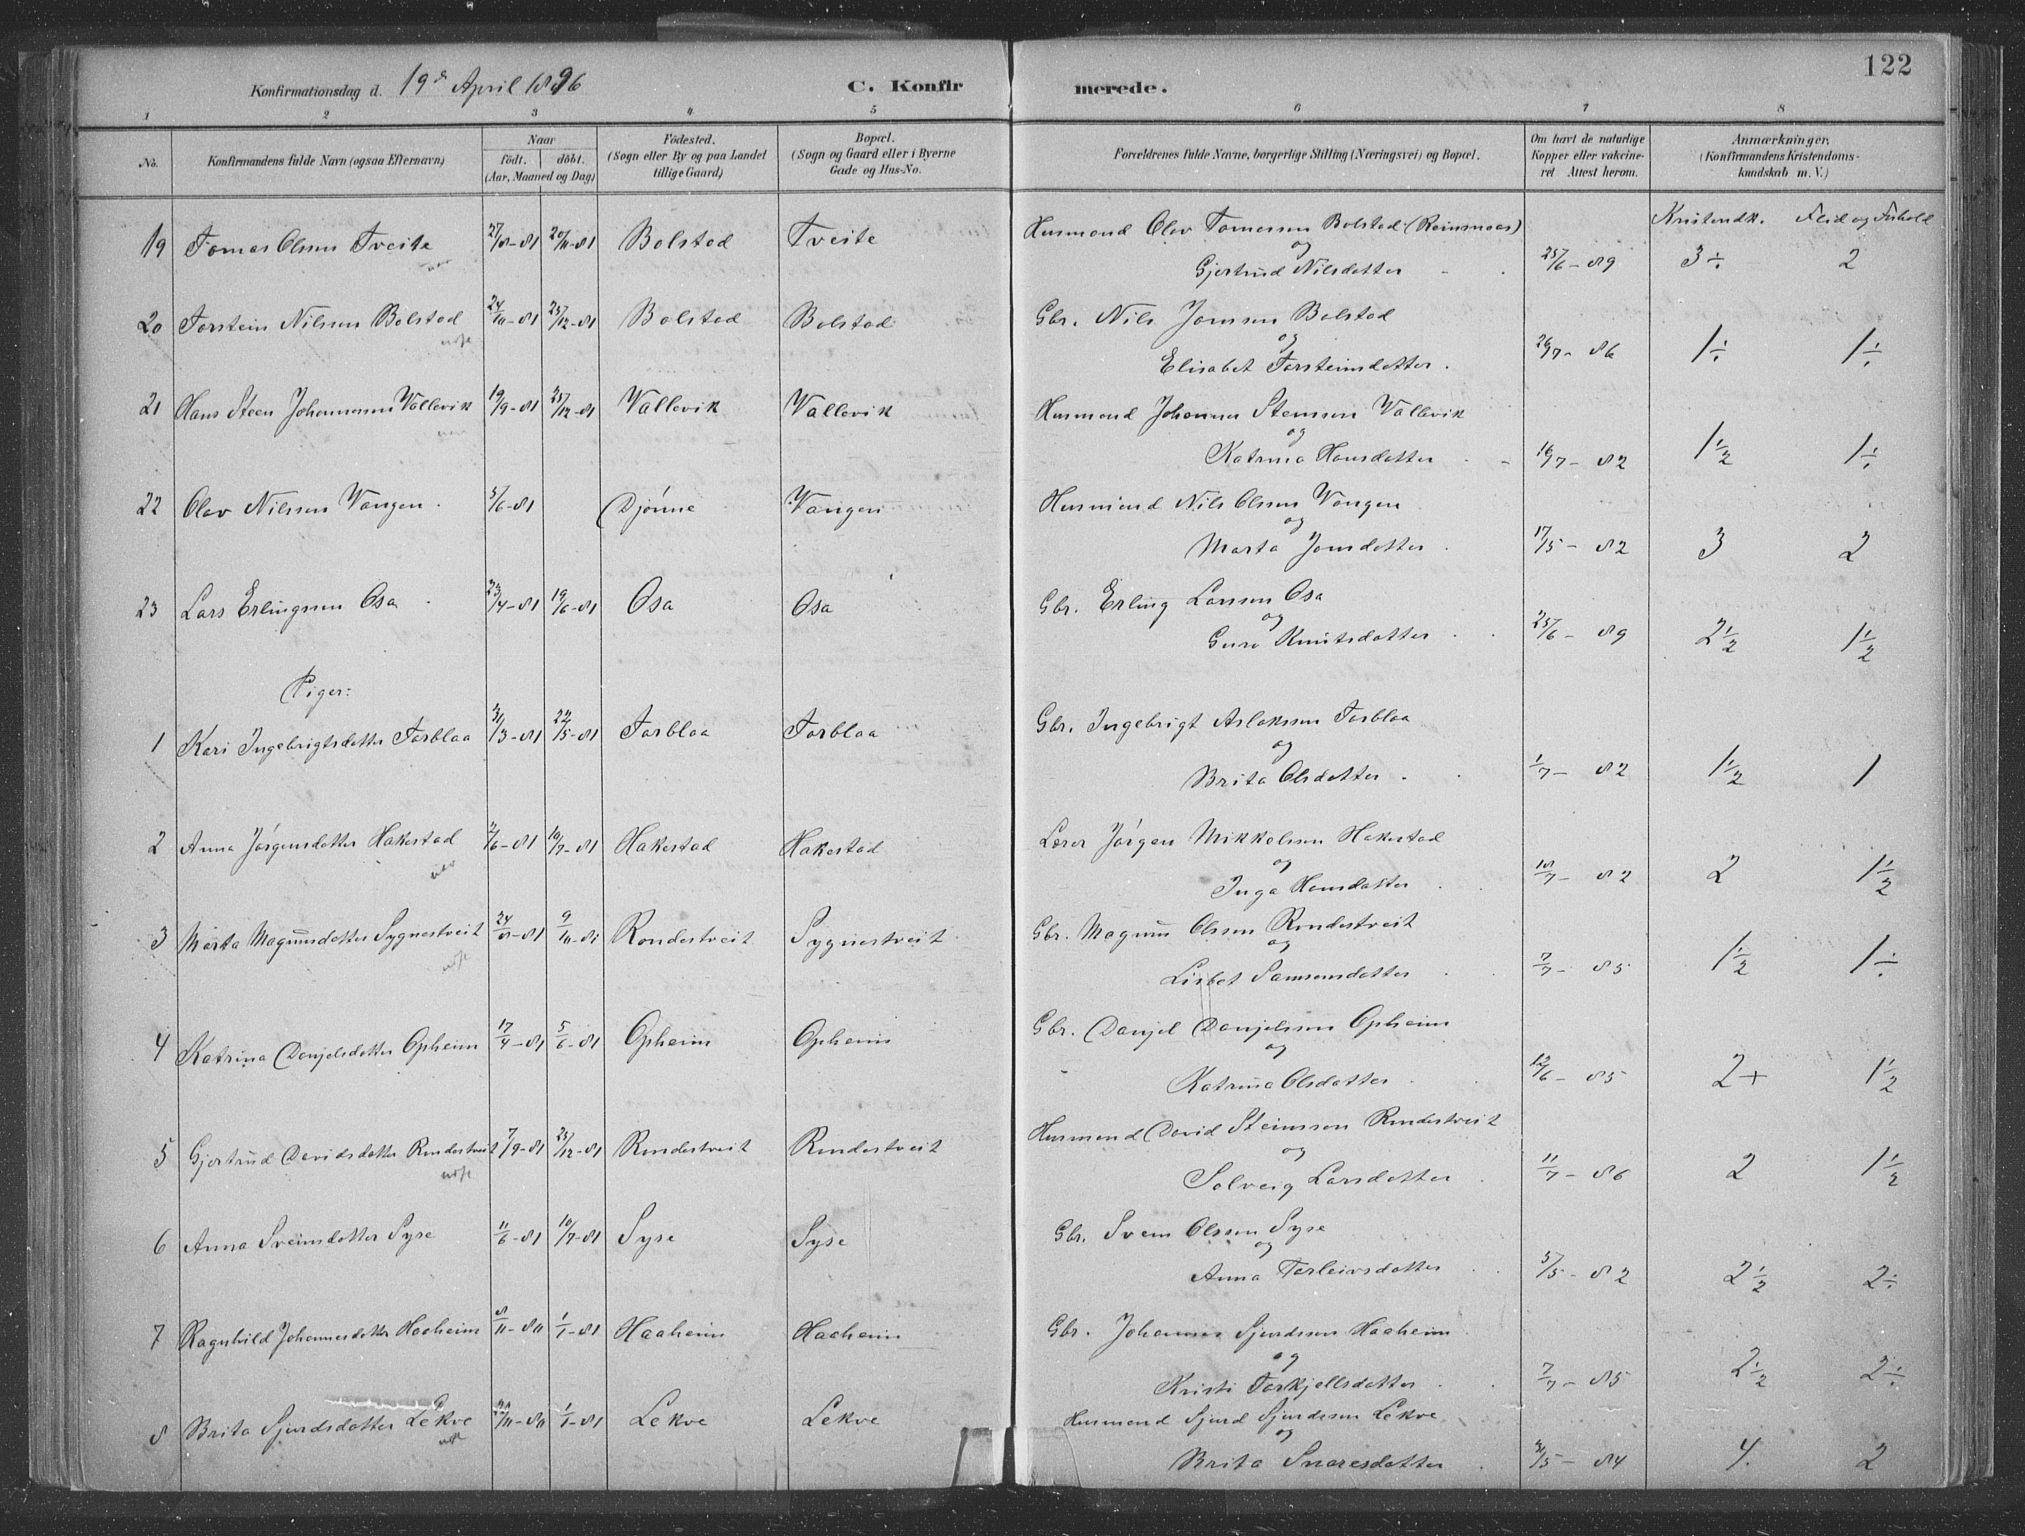 122
Konfirmationsdag d. 19de April 1896
C. Konfirmerede.
1 2 3 4 5 6 7 8
No. Konfirmandens fulde Navn (ogsaa Efternavn) Naar født. døbt. (Aar, Maaned og Dag) Fødested. (Sogn eller By og paa Landet tillige Gaard) Bopæl. (Sogn og Gaard eller i Byerne Gade og Hus-No. Forældrenes fulde Navne, borgerlige Stilling (Næringsvei) og Bopæl. Om havt de naturlige Kopper eller vakcineret Attest herom. Anmærkninger. (Konfirmandens Kristendomskundskab m. V.)
Kristendk. Flid og Forhold
19 Tomas Olsen Tveite 27/8-81 20/11-81 Bolstad Tveite Husmand Olav Tomassen Bolstad (Reinsnaas)
og
Gjertrud Nilsdatter 25/6-89 3÷ 2
20 Torstein Nilssen Bolstad 24/10-81 25/12-81 Bolstad Bolstad Gbr. Nils Jonssen Bolstad
og
Elisabet Torsteinsdatter. 26/7-86 1÷ 1÷
21 Hans Steen Johannessen Vallevik 19/9-81 25/12-81 Vallevik Vallevik Husmand Johannes Steinsen Vallevik
og
Katrina Hansdatter 16/7-82 1½ 1÷
22 Olav Nilssen Vangen. 5/6-81 Djønne Vangen Husmand Nils Olssen Vangen
og
Marta Jonsdatter 17/5-82 3 2
23 Lars Erlingssen Osa 23/4-81 19/6-81 Osa Osa Gbr. Erling Larssen Osa
og
Guro Knutsdatter 25/6-89 2½ 1½
Piger:
1 Kari Ingebrigtsdatter Torblaa 31/3-81 22/5-81 Torblaa Torblaa Gbr. Ingebrigt Aslakssen Torblaa
og
Brita Olsdatter 1/7-82 1½ 1
2 Anna Jørgensdatter Hakestad 2/6-81 10/7-81 Hakestad Hakestad Lærer Jørgen Mikkelssen Hakestad
og
Inga Hansdatter 18/7-82 2 1½
3 Marta Magnusdatter Sygnestveit 24/8-81 9/10-81 Rondestveit Sygnestveit Gbr. Magnus Olssen Rondestveit
og
Lisbet Samsonsdatter 7/7-85 1½ 1÷
4 Katrina Danjelsdatter Opheim 17/4-81 5/6-81 Opheim Opheim Gbr. Danjel Danjelssen Opheim
og
Katrina Olsdatter 12/6-85 2+ 1½
5 Gjertrud Davidsdatter Rondestveit 7/9-81 25/12-81 Rondestveit Rondestveit Husmand David Steinssen Rondestveit
og
Solveig Larsdatter 11/7-86 2 1½
6 Anna Sveinsdatter Syse 11/6-81 10/7-81 Syse Syse Gbr. Svein Olssen Syse
og
Anna Torleivsdatter 5/5-82 2½ 2÷
7 Ragnhild Johannesdatter Haaheim 8/11-80 1/1-81 Haaheim Haaheim Gbr. Johannes Sjurdssen Haaheim
og
Kristi Torkjellsdatter 7/7-85 2½ 2÷
8 Brita Sjurdsdatter Lekve 1/1-81 Lekve Lekve Husmand Sjurd Sjurdssen Lekve
og
Brita Snaresdatter 84 4. 2